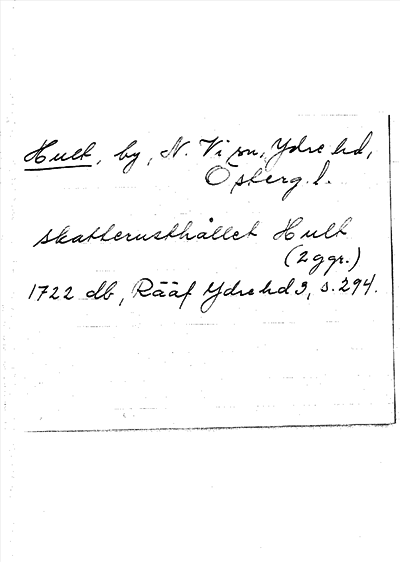 Hult, by, N. Vi sn, Ydre hd,
Österg. l.
skatterusthållet Hult
(2 ggr.)
1722 db, Rääf Ydre hd 3, s. 294.